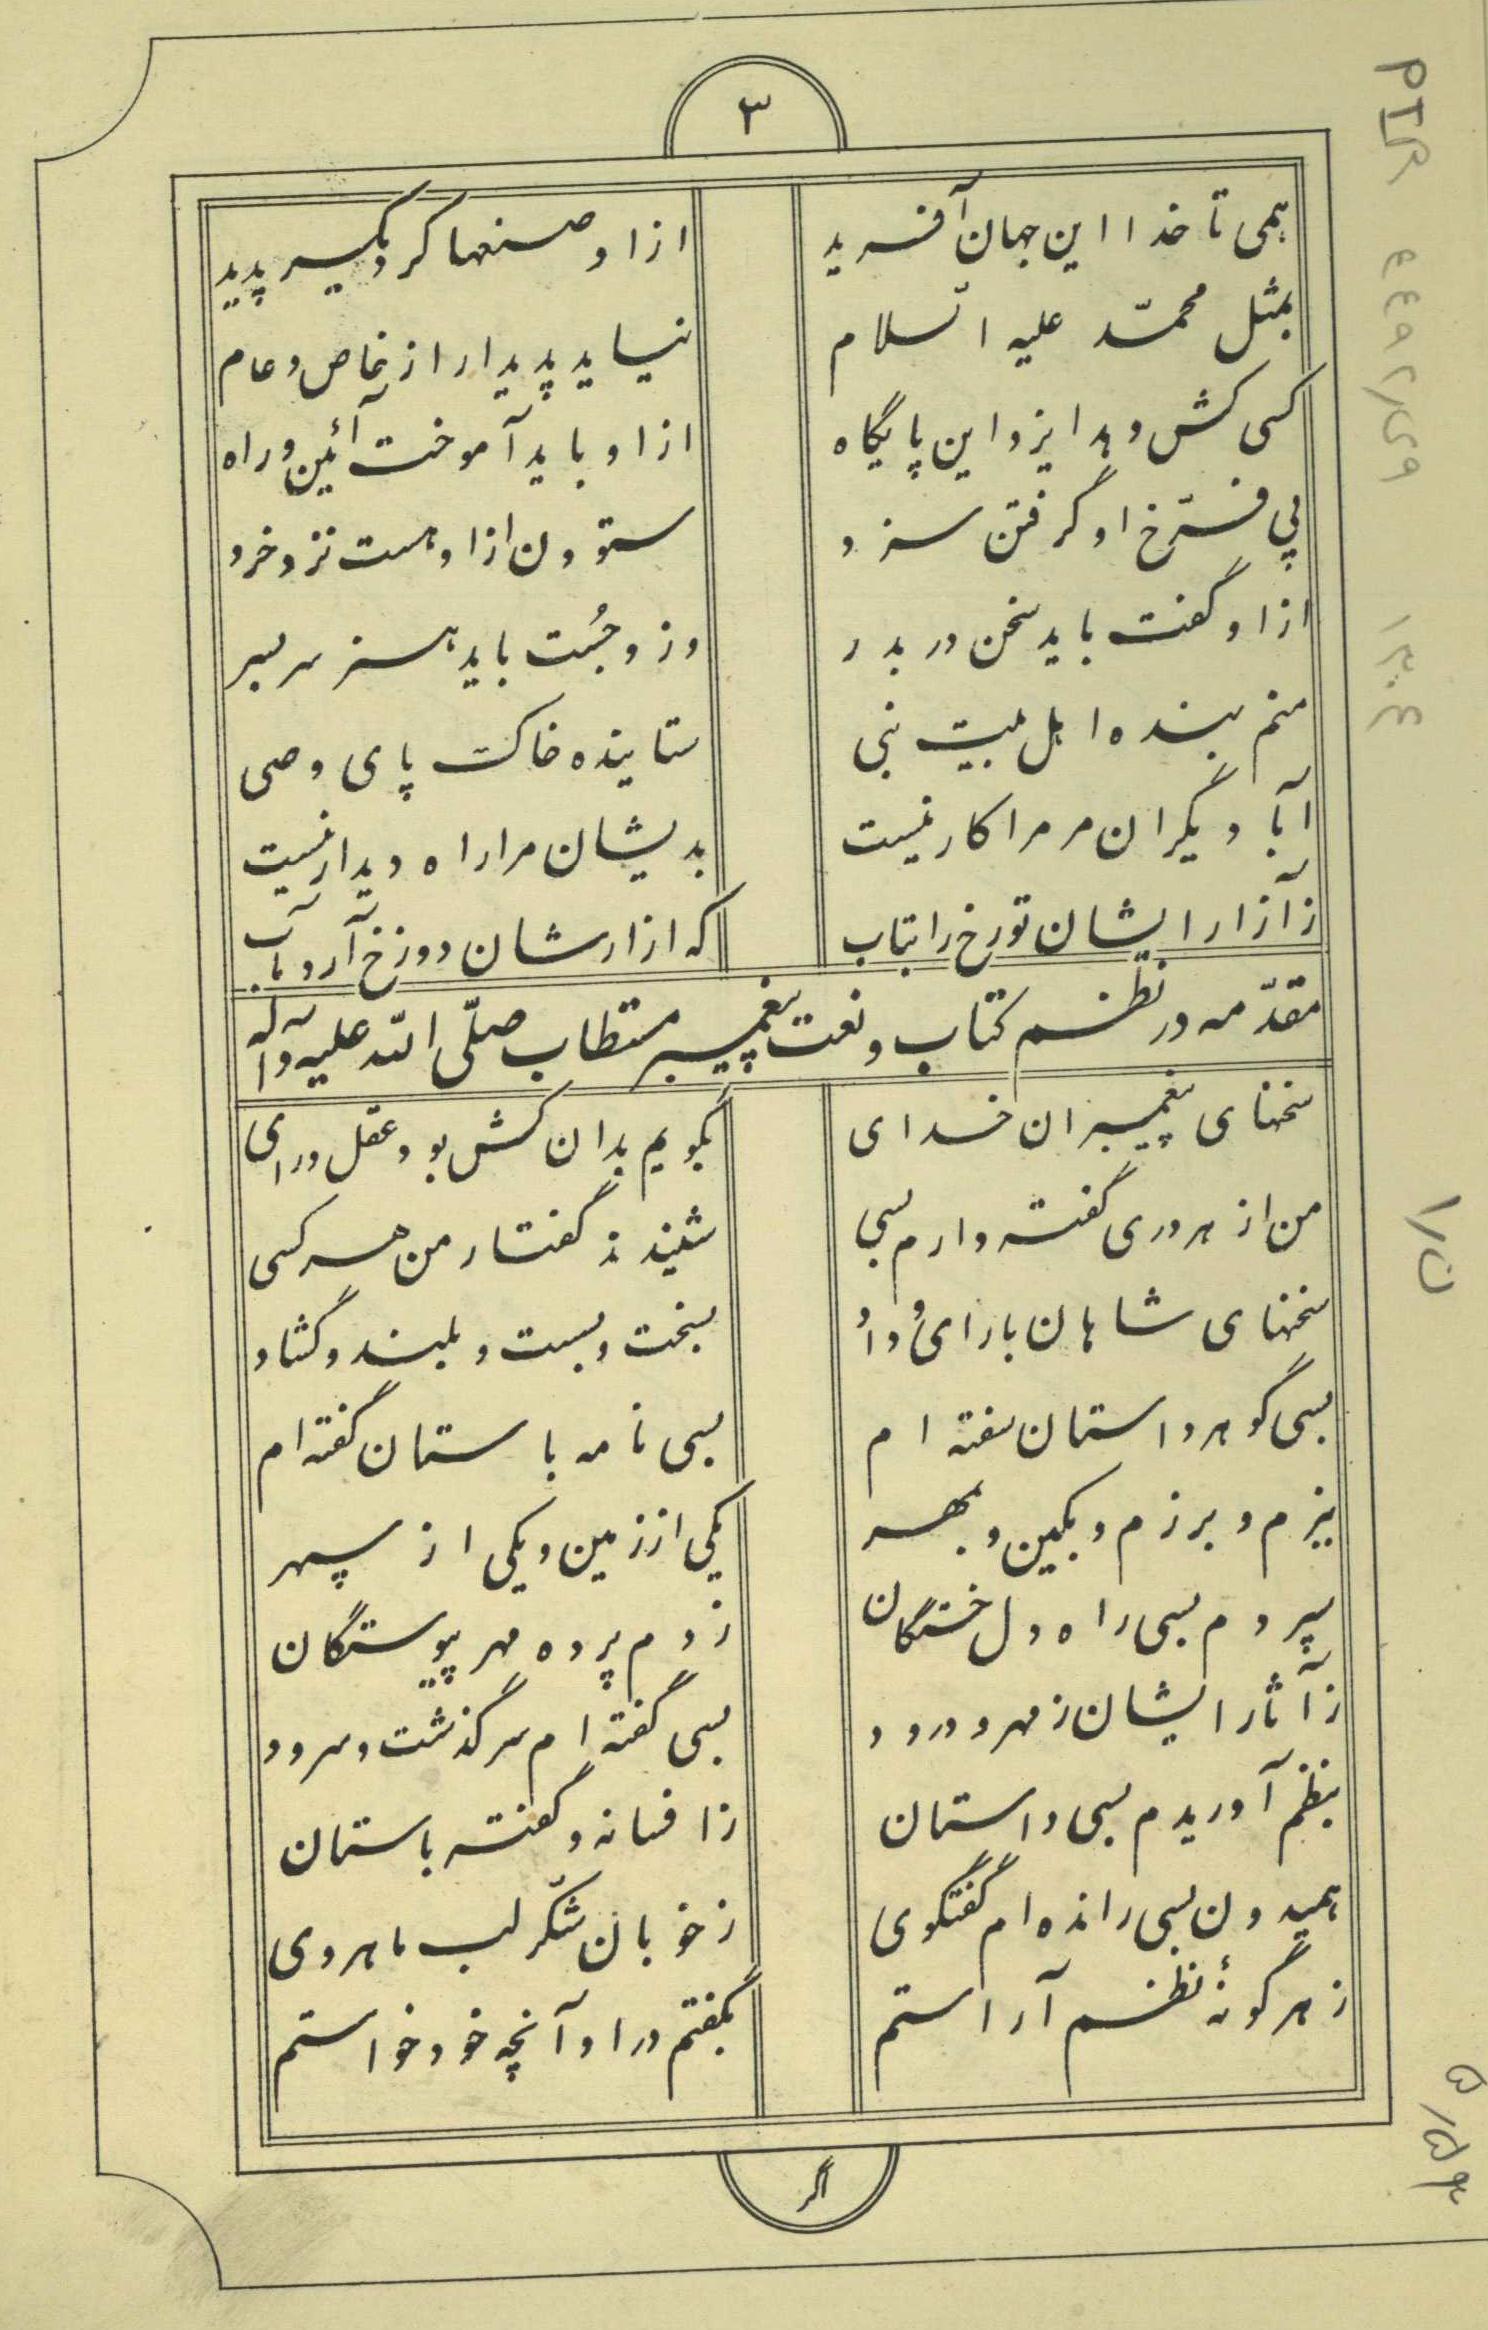 ۳
همی تا خدا این جهان آفرید    از او صنعها کرد یکسر پدید
بمثل محمّد علیه السّلام    نیاید پدیدار از خاص و عام
کسی کش دهد ایزد این پایگاه    از او باید آموخت آئین و راه
پی فرّخ او گرفتن سزد    ستودن از او هست نزد خرد
از او گفت باید سخن در بدر    وز و جُست باید هنر سر بسر
منم بنده اهل بیت نبی    ستاینده خاک پای وصی
ابا دیگران مر مرا کار نیست    بدیشان مرا راه دیدار نیست
ز آزار ایشان تو رخ را بتاب    که ازارشان دوزخ آرد مآب
مقدّمه در نظم کتاب و نعت پیغمبر مستطاب صلّی الله علیه و آله
سخنهای پیغمبران خدای    بگویم بدان کش بود عقل و رای
من از هر دری گفته دارم بسی    شنیدند گفتار من هر کسی
سخنهای شاهان با رای و داد    بسخت و بسست و بلند و گشاد
بسی گوهر داستان سفته ام    بسی نامه باستان گفته ام
ببزم و برزم و بکین و بمهر    یکی از زمین و یکی از سپهر
سپردم بسی راه دل خستگان    زدم پرده مهر پیوستگان
ز آثار ایشان ز مهر و درود    بسی گفته ام سرگذشت و سرود
بنظم آوریدم بسی داستان    ز افسانه و گفته باستان
همیدون بسی رانده ام گفتگوی    ز خوبان شکّر لب ماهروی
ز هر گونهٔ نظم آراستم    بگفتم در او آنچه خود خواستم
اگر
PIR
٤٤٩٢/ی٩
١٣٠٤